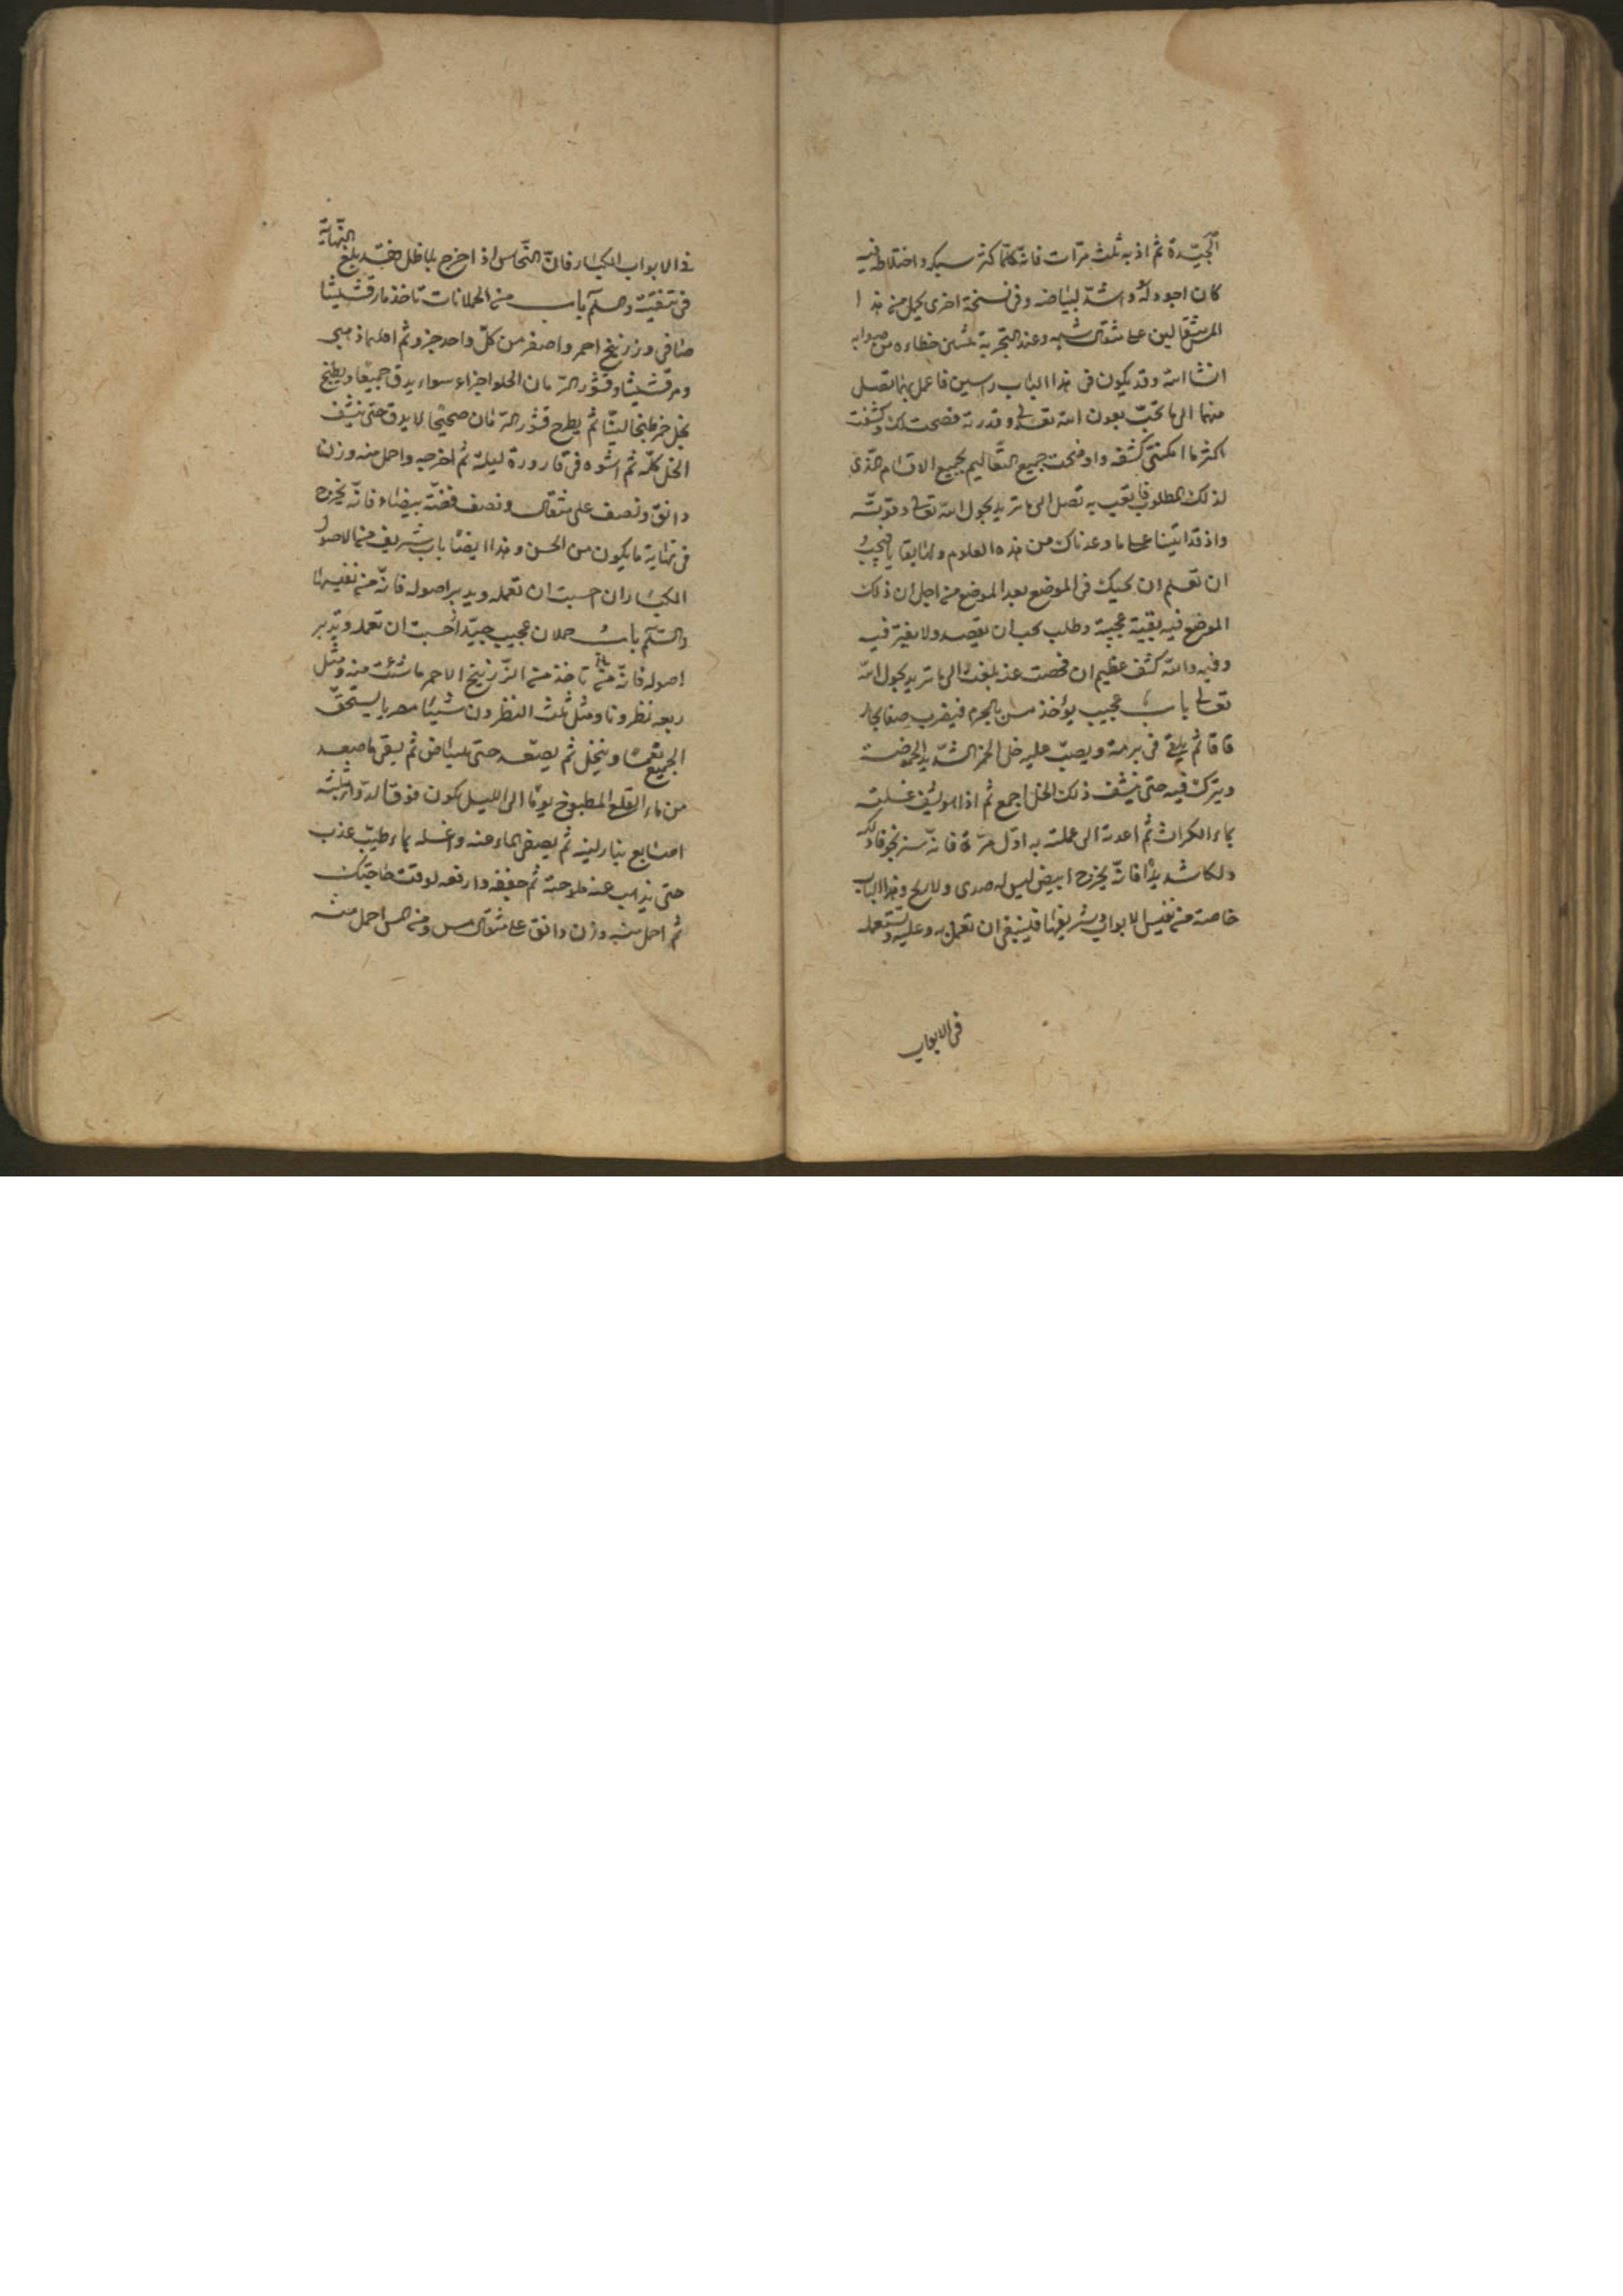 الجيّدة ثم اذبه ثلث مرّات فانّه كلّما كثر سبكه واختلاطه فيه
كان اجود له واشدّ لبياضه وفى نسخة اخرى يحمل من هذا
المرمثقالين على مثقال شبه وعند التجربة تبيّن خطاءه من صوابه
انشا الله وقد يكون فى هذا الباب راسين فاعمل بهما تصل
منهما الى ما تحبّ بعون الله تعالى وقدرته فصحت لك وكشفت
اكثر ما امكننى كشفه واوضحت جميع التعاليم لجميع الاقسام الذى
لذلك المطلوب فاتعب به تصل الى ما تريد بحول الله تعالى وقوته
واذ قد اتينا على ما وعدناك من هذه العلوم
ان تعلم ان نحيك فى الموضع بعد الموضع من اجل ان ذلك
الموضع فيه بقية عجيبة وطلب يجب ان يقصد ولا يغيّر فيه
وفيه والله كشف عظيم ان فحصت عنه بلغت الى ما تريد بحول الله
تعالى باب عجيب يؤخذ مس بالجرم فيضرب صفايحا
قاقا ثم يلقى فى برمة ويصبّ عليه خل الخمر الشديد الحموضة
ويترك فيه حتى ينشف ذلك الخل اجمع ثم اذا هو نشف غسلته
بماء الكراث ثم اعدته الى عملته به اوّل مرّة فانه
دلكا شديدًا فانّه يخرج ابيض ليس له صدى ولا ريح وهذا الباب
خاصة من نفيس الابواب وشريفها فينبغى ان تعمل به وعليه وتستعمله
فى الابواب
فى الابواب الكبار فانّ النحاس اذ اخرج بلا ظل فقد بلغ النهاية
فى تنقيته والسلم باب من الحملانات تاخذ مارقشيثا
صافى وزرنيخ احمر واصفر من كلّ واحد جزو ثم
ومرقشيثا وقشور الرمان الحلو اجزاء سواء يدق جميعًا ويطبخ
بخل خمر طبخا ليّنًا ثم يطرح قشور الرمان صحيحًا لا يدق حتى ينشف
الخل كلّه ثم اشوه فى قارورة ليلة ثم اخرجه واحمل منه وزن
دانق ونصف على مثقال ونصف فضّة بيضاء فانه يخرج
فى نهاية ما يكون من الحسن وهذا ايضًا باب شريف من الاصول
الكبار ان احببت ان تعمله ويدبر اصوله فانّه من نفيسها
والسلم باب حملان عجيب جيّد ان احببت ان تعمله وتدبر
اصوله فانّه من تاخذ من الزرنيخ الاحمر ما شئت منه ومثل
ربعه نظرونا ومثل ثلث النظرون شيئا يسحق
الجميع نعمّا وينخل ثم يصعّد حتى يبياض ثم يسقى ما صعد
من ماء القلى المطبوخ يومًا الى الليل يكون فوق الدواء بثلثة
اصابع بنار لينة ثم يصفى الماء عنه واغسله بماء طيّب عذب
حتى يذهب عنه ملوحته ثم جففه وارفعه لوقت حاجتك
ثم احمل منه وزن دانق على مثقال مس ومن المس احمل منه